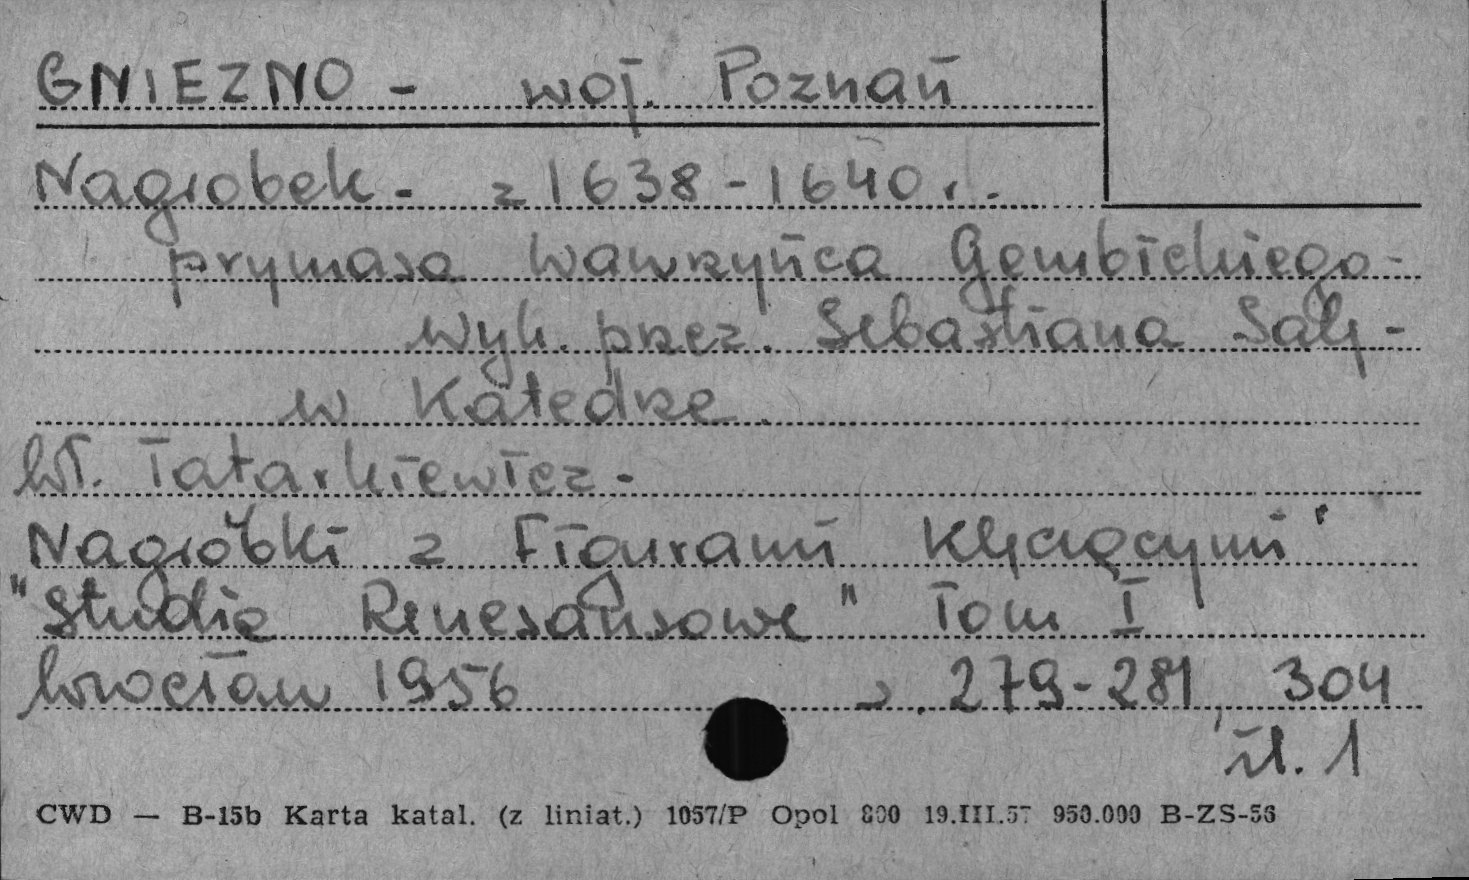 GNIEZNO - woj. Poznań
Nagrobek - z 1638-1640 r.
prymasa Wawrzyńca Gembickiego -
wyk. przez. Sebastiana Salę -
w Katedrze.
Wł. Tatarkiewicz -
Nagrobki z Figurami Klęczącymi"
"Studia Renesansowe" Tom I
Wrocław 1956 s. 279-281, 304
il. 1
CWD — B-15b Karta katal. (z liniat.) 1057/P Opol 800 19.III.57 950.000 B-ZS-56